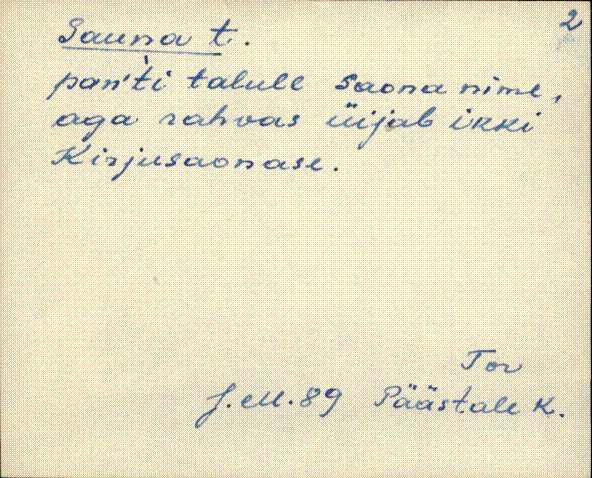 2
Sauna t.
pan'ti talule Saona nime,
aga rahvas üijab ikki
Kirjusaonase.
Tor
J.M.89 Päästale K.